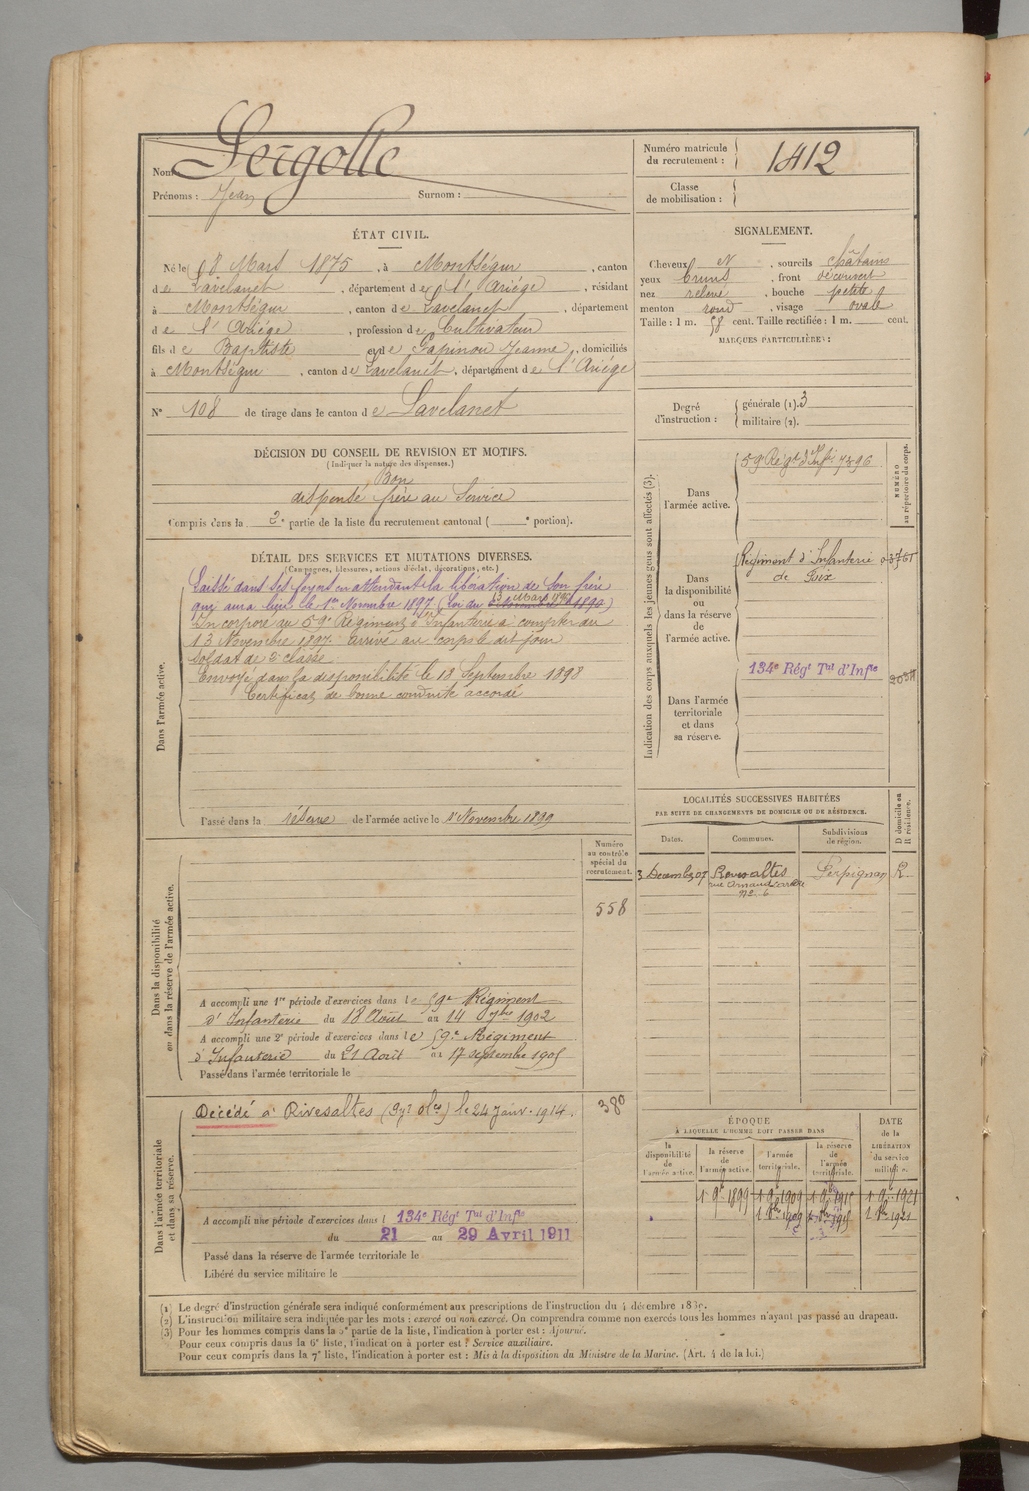 Nom Sergolle
Prénoms : Jean Surnom :
Numéro matricule du recrutement : 1412
Classe de mobilisation :
ÉTAT CIVIL.
Né le 8 Mars 1875, à Montségur, canton
de Lavelanet, département de l'Ariége, résidant
à Montségur, canton de Lavelanet, département
de l'Ariége, profession de Cultivateur
fils de Baptiste et de Gapinou Jeanne, domiciliés
à Montségur, canton de Lavelanet, département de l'Ariége
N° 108 de tirage dans le canton de Lavelanet
SIGNALEMENT.
Cheveux et, sourcils châtains
yeux bruns, front découvert
nez relevé, bouche petite
menton rond, visage ovale
Taille : 1 m. 58 cent. Taille rectifiée : 1 m. cent.
MARQUES PARTICULIÈRES :
Degré d'instruction : générale (1). 3
militaire (2).
DÉCISION DU CONSEIL DE REVISION ET MOTIFS.
(Indiquer la nature des dispenses.)
Bon
dispensé frère au Service
Compris dans la 2e partie de la liste du recrutement cantonal ( e portion).
DÉTAIL DES SERVICES ET MUTATIONS DIVERSES.
(Campagnes, blessures, actions d'éclat, décorations, etc.)
Dans l'armée active.
Laissé dans ses foyers en attendant la libération de son frère
qui aura lieu le 1er Novembre 1897 (Loi du
Incorporé au 59e Régiment d'Infanterie à compter du
13 Novembre 1897. Arrivé au corps le dit jour
soldat de 2e classe
Envoyé dans la disponibilité le 18 Septembre 1898
Certificat de bonne conduite accordé
Passé dans la réserve de l'armée active le 1er Novembre 1899
Indication des corps auxquels les jeunes gens sont affectés (3).
NUMÉRO au répertoire du corps.
Dans l'armée active.
59e Régt d'Infie
Dans la disponibilité ou dans la réserve de l'armée active.
Régiment d'Infanterie
de Foix
Dans l'armée territoriale et dans sa réserve.
134e Régt Tal d'Infie
LOCALITÉS SUCCESSIVES HABITÉES
PAR SUITE DE CHANGEMENTS DE DOMICILE OU DE RÉSIDENCE.
Dates. Communes. Subdivisions de région. D domicile ou R résidence.
3 Decembre 07 Rivesaltes Perpignan R
rue Arnaud
No 6
Dans la disponibilité ou dans la réserve de l'armée active.
Numéro au contrôle spécial du recrutement.
558
A accompli une 1re période d'exercices dans le 59e Régiment
d'Infanterie du 18 Août au 14 7bre 1902
A accompli une 2e période d'exercices dans le 59e Régiment
d'Infanterie du 21 Août au 17 septembre 1905
Passé dans l'armée territoriale le
Dans l'armée territoriale et dans sa réserve.
Décédé à Rivesaltes (Pyr Ples) le 24 Janv. 1914.
380
A accompli une période d'exercices dans l 134e Régt Tal d'Infie
du 21 au 29 Avril 1911
Passé dans la réserve de l'armée territoriale le
Libéré du service militaire le
ÉPOQUE
À LAQUELLE L'HOMME DOIT PASSER DANS
DATE de la LIBÉRATION du service militaire.
la disponibilité de l'armée active. la réserve de l'armée active. l'armée territoriale. la réserve de l'armée territoriale.
1 9e 1899 1 9e 1909 1 9e 1915 1 9e 1921
(1) Le degré d'instruction générale sera indiqué conformément aux prescriptions de l'instruction du 4 décembre 1889.
(2) L'instruction militaire sera indiquée par les mots : exercé ou non exercé. On comprendra comme non exercés tous les hommes n'ayant pas passé au drapeau.
(3) Pour les hommes compris dans la 5e partie de la liste, l'indication à porter est : Ajourné.
Pour ceux compris dans la 6e liste, l'indication à porter est : Service auxiliaire.
Pour ceux compris dans la 7e liste, l'indication à porter est : Mis à la disposition du Ministre de la Marine. (Art. 4 de la loi.)